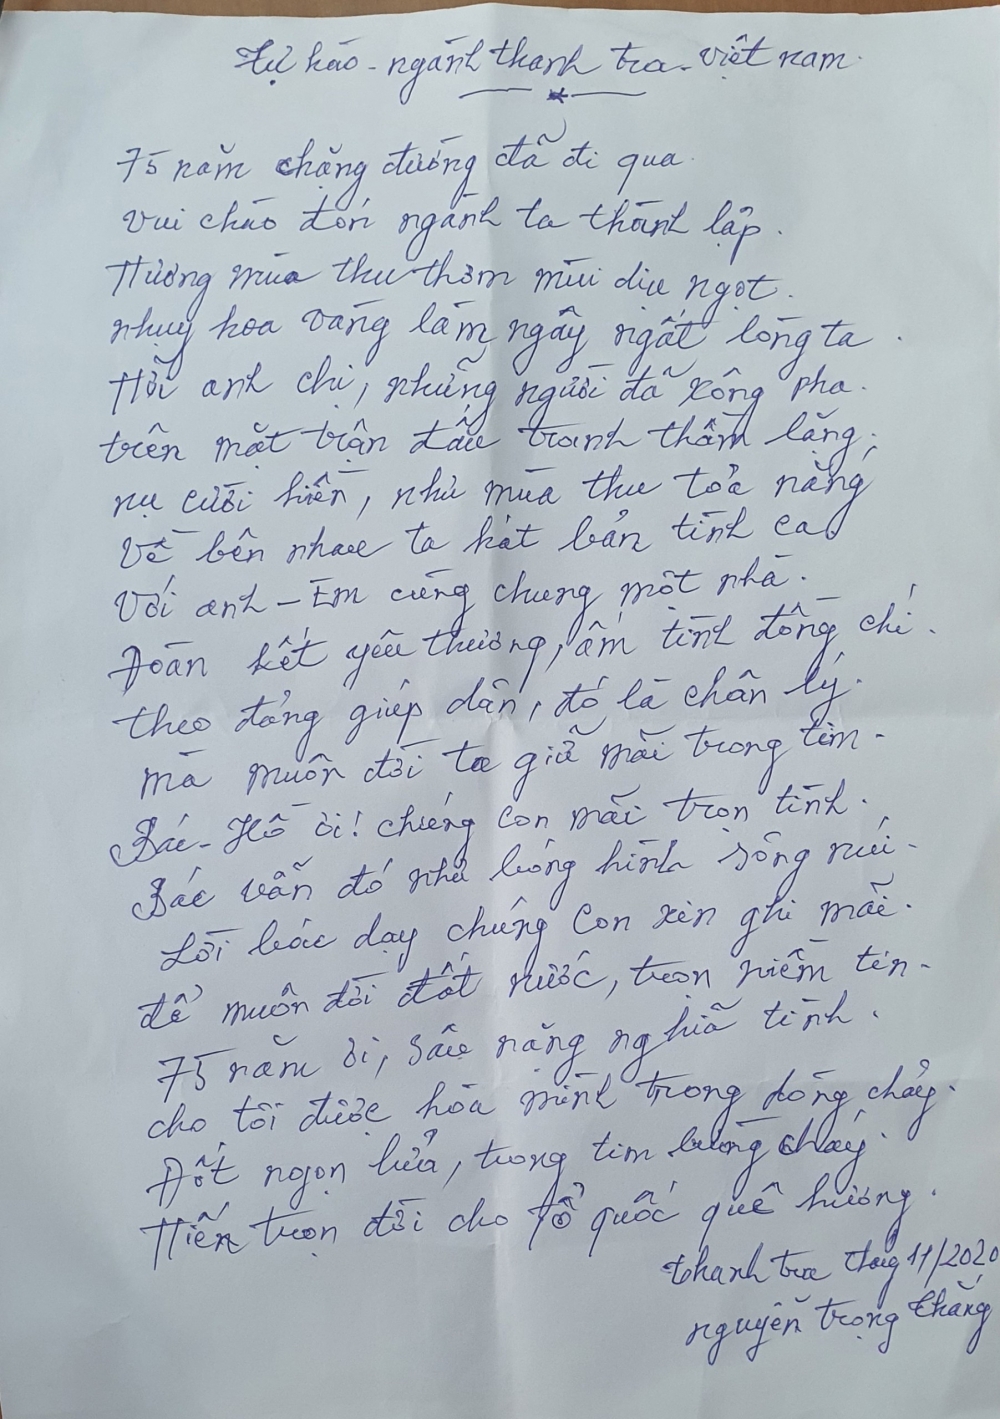 Tự hào - ngành thanh tra - việt nam.
75 năm chặng đường đã đi qua.
vui chào đón ngành ta thành lập.
Hương mùa thu thơm mùi dịu ngọt.
nhụy hoa vàng làm ngây ngất lòng ta.
Hỡi anh chị, những người đã xông pha.
trên mặt trận đấu tranh thầm lặng,
nụ cười hiền, như mùa thu tỏa nắng
Về bên nhau ta hát bản tình ca
Với anh - Em cùng chung một nhà.
Đoàn kết yêu thương, ấm tình đồng chí.
theo đảng giúp dân, đó là chân lý.
mà muôn đời ta giữ mãi trong tim.
Bác - Hồ ơi! chúng con mãi trọn tình.
Bác vẫn đó như bóng hình sông núi.
Lời bác dạy chúng con xin ghi mãi.
để muôn đời đất nước, trọn niềm tin.
75 năm ơi, sâu nặng nghĩa tình.
cho tôi được hòa mình trong dòng chảy.
Đốt ngọn lửa, trong tim bừng cháy.
Hiến trọn đời cho Tổ quốc quê hương.
thanh tra tháng 11/2020
nguyễn trọng thắng